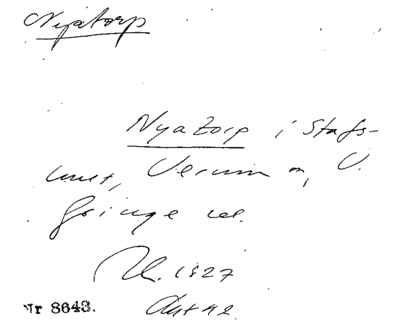 Nyatorp
Nyatorp i Stafs-
hult, Verum sn, V.
Göinge hd.
1827
Nr 8643.